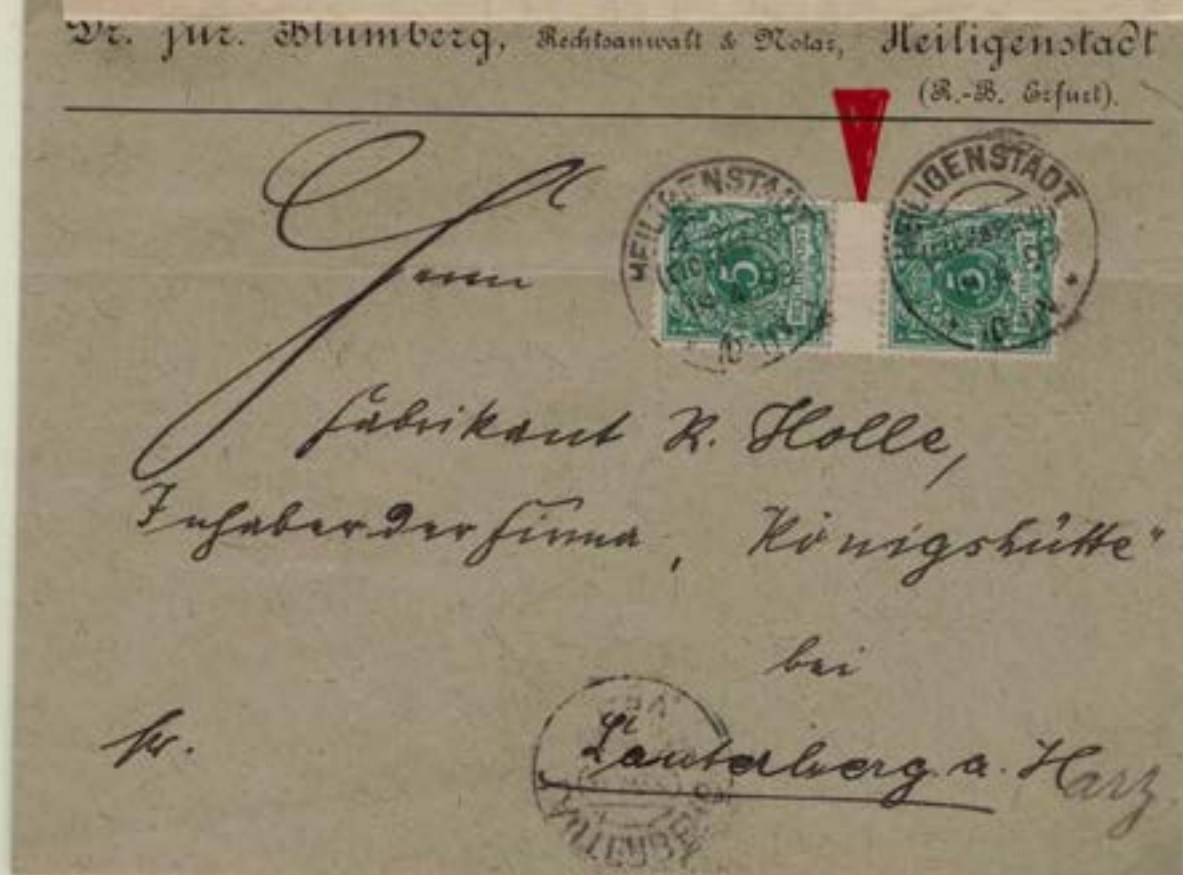 Dr. jur. Blumberg, Rechtsanwalt & Notar, Heiligenstadt
(R.-B. Erfurt).
HEILIGENSTADT
5
HEILIGENSTADT
5
Herrn
Fabrikant R. Holle,
Inhaber der Firma „Königshütte“
bei
fr.
Lauterberg a. Harz